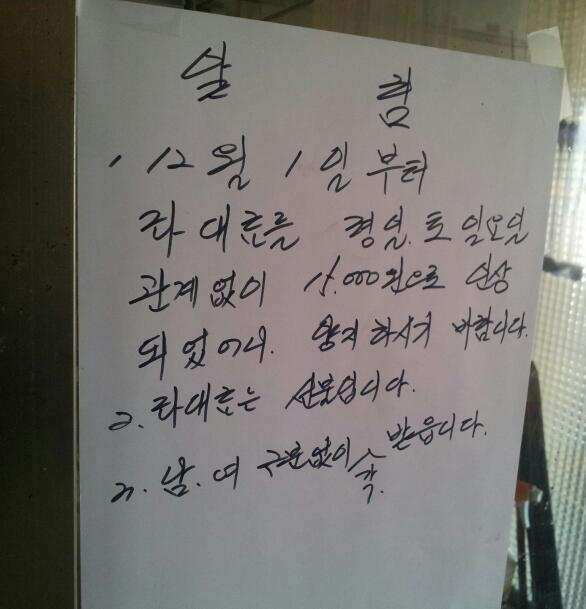 알 림
1 12월 1일부터
좌대료를 평일.토일요일
관계없이 15.000원으로 인상
되었아니. 양지하시기 바랍니다.
2. 좌대료는 선불입니다.
3. 남.여 구분없이 각. 받읍니다.